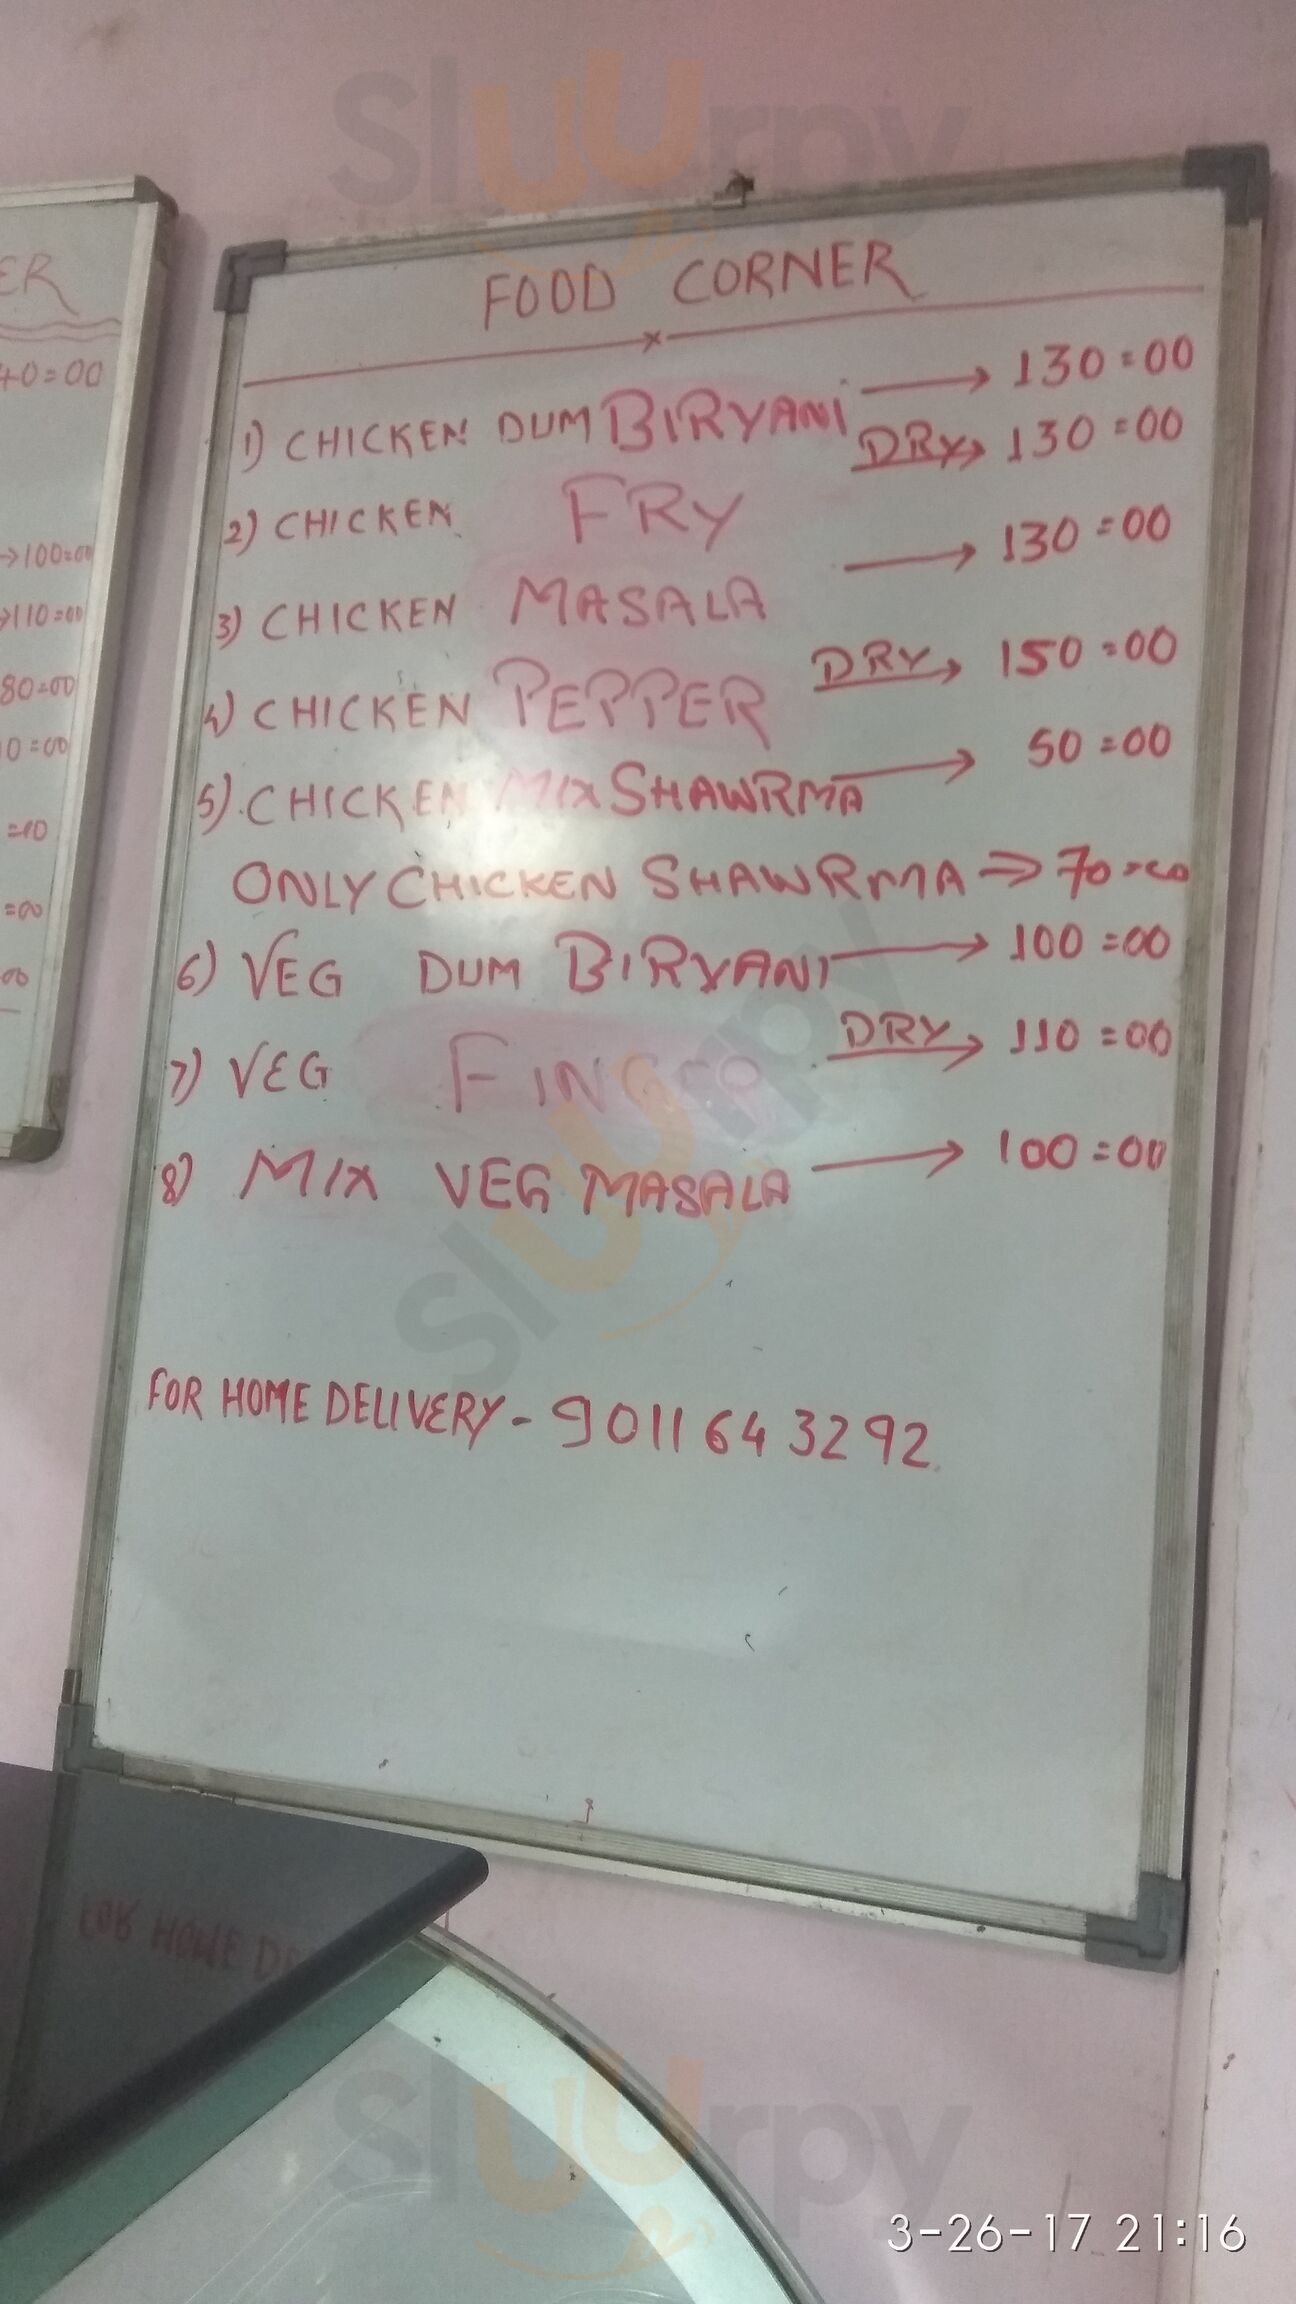 Sluurpy
FOOD CORNER
1) CHICKEN DUM BIRYANI → 130=00
2) CHICKEN FRY DRY → 130=00
3) CHICKEN MASALA → 130=00
4) CHICKEN PEPPER DRY → 150=00
5) CHICKEN MIX SHAWRMA → 50=00
ONLY CHICKEN SHAWRMA ⇒ 70=00
6) VEG DUM BIRYANI → 100=00
7) VEG FINGER DRY → 110=00
8) MIX VEG MASALA → 100=00
FOR HOME DELIVERY - 9011643292
Sluurpy
ER
40=00
→100=00
→110=00
80=00
0=00
=10
=00
00
FOR HOME DE
Sluurpy
3-26-17 21:16